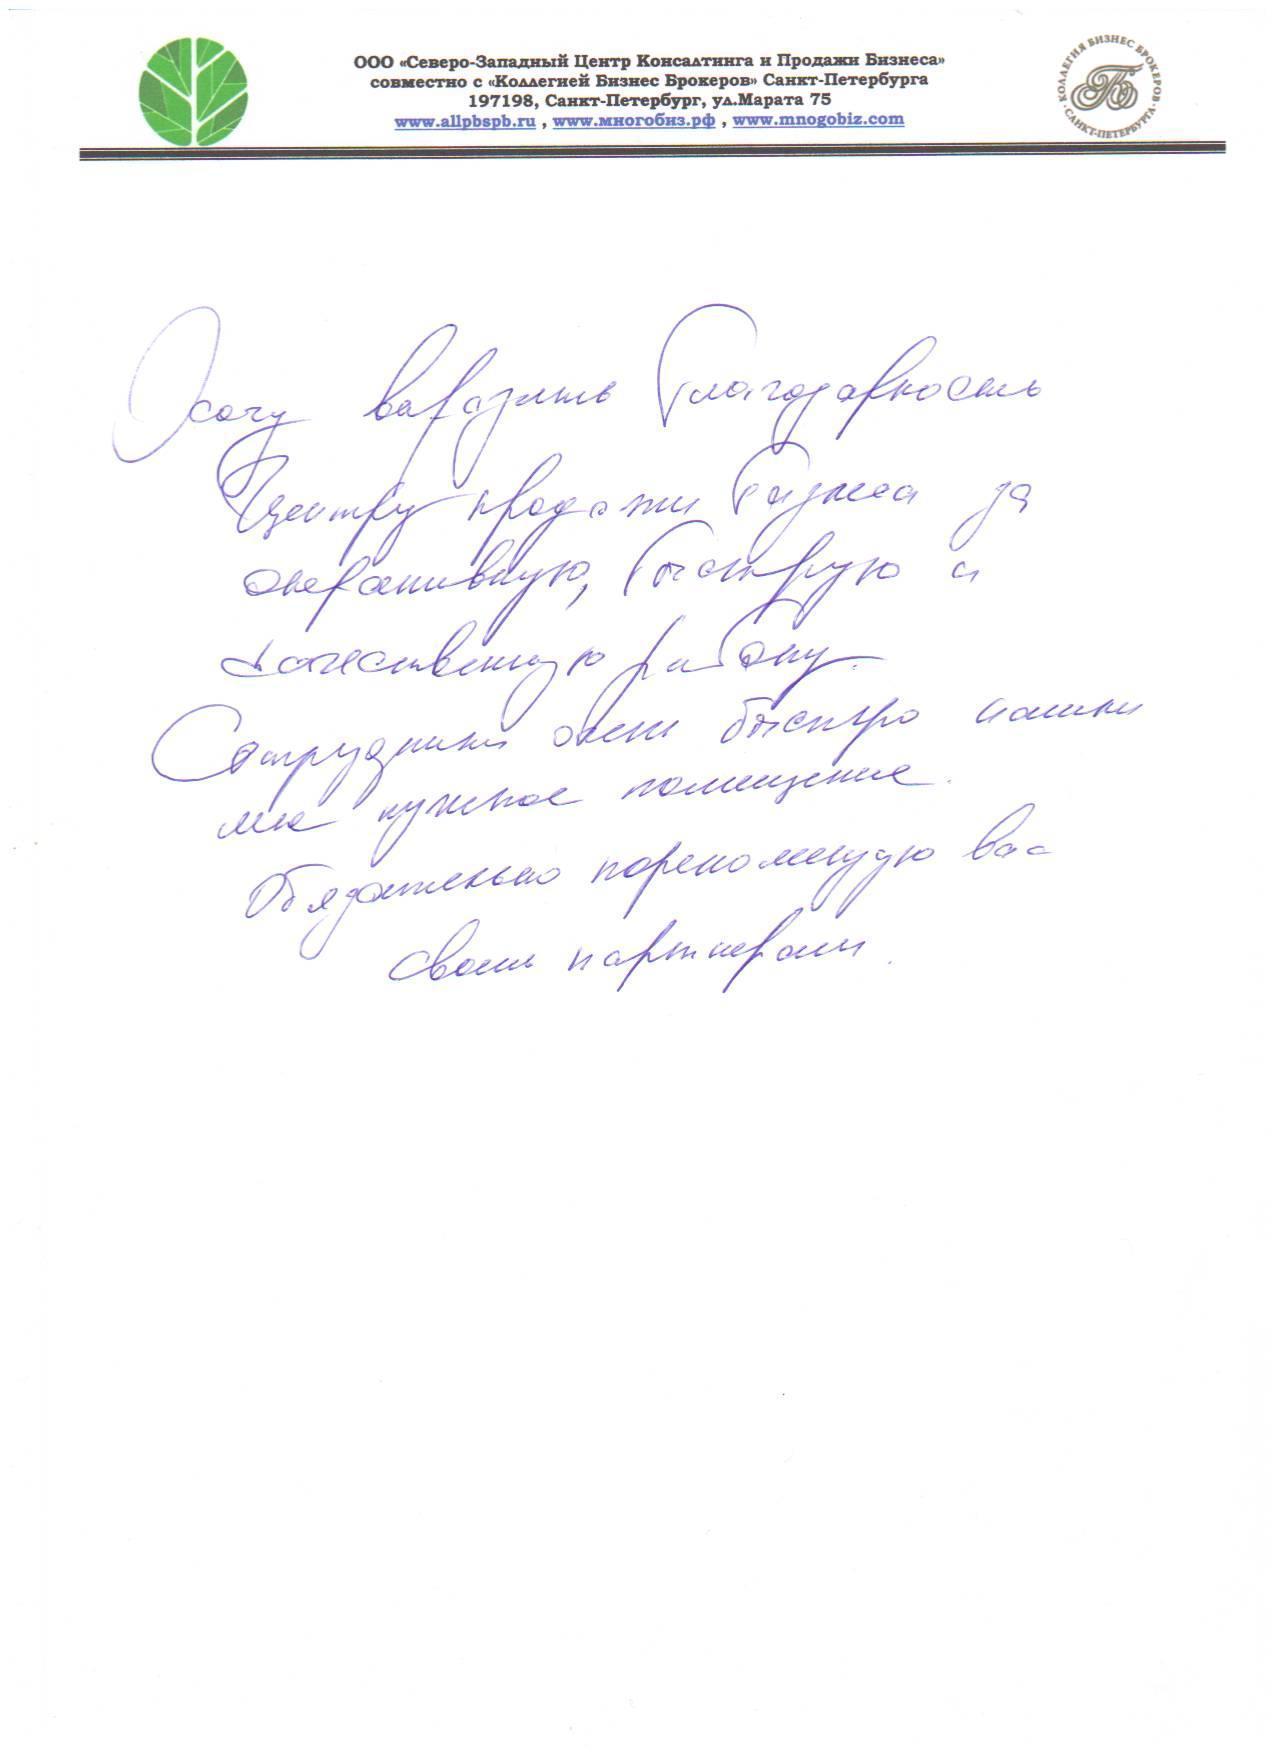 ООО «Северо-Западный Центр Консалтинга и Продажи Бизнеса»
совместно с «Коллегией Бизнес Брокеров» Санкт-Петербурга
197198, Санкт-Петербург, ул.Марата 75
www.allpbspb.ru , www.многобиз.рф , www.mnogobiz.com
КОЛЛЕГИЯ БИЗНЕС БРОКЕРОВ
САНКТ-ПЕТЕРБУРГА
Хочу выразить благодарность
Центру продажи бизнеса за
оперативную, быструю и
качественную работу.
Сотрудники очень быстро нашли
мне нужное помещение.
Обязательно порекомендую вас
своим партнерам.